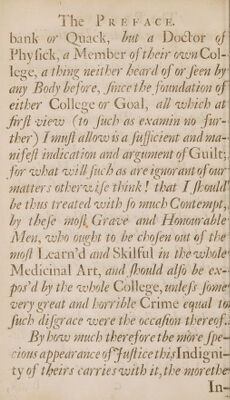 The PREFACE.
bank or Quack, but a Doctor of
Phyſick, a Member of their own Col-
lege, a thing neither heard of or ſeen by
any Body before, ſince the foundation of
either College or Goal, all which at
firſt view (to ſuch as examin no fur-
ther) I muſt allow is a ſufficient and ma-
nifeſt indication and argument of Guilt;
for what will ſuch as are ignorant of our
matters otherwiſe think! that I ſhould
be thus treated with ſo much Contempt,
by theſe moſt Grave and Honourable
Men, who ought to be choſen out of the
moſt Learn'd and Skilful in the whole
Medicinal Art, and ſhould alſo be ex-
pos'd by the whole College, unleſs ſome
very great and horrible Crime equal to
ſuch diſgrace were the occaſion thereof.
By how much therefore the more ſpe-
cious appearance of Juſtice this Indigni-
ty of theirs carries with it, the more the
In-